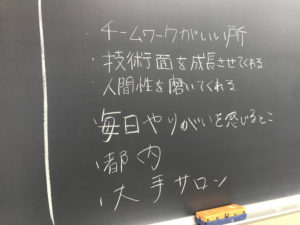 ・チームワークがいい所
・技術面を成長させてくれる
・人間性を磨いてくれる
・毎日やりがいを感じるとこ
・都内
・大手サロン